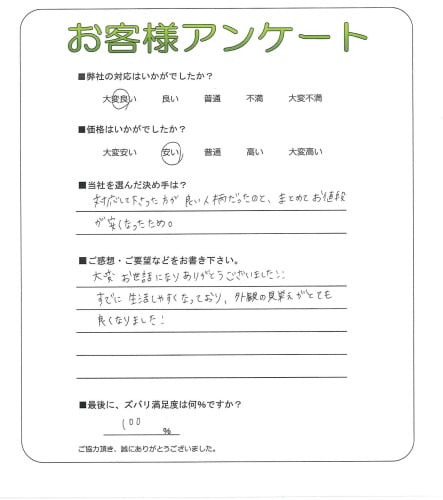 お客様アンケート
■弊社の対応はいかがでしたか？
大変良い 良い 普通 不満 大変不満
■価格はいかがでしたか？
大変安い 安い 普通 高い 大変高い
■当社を選んだ決め手は？
対応して下さった方が良い人柄だったのと、まとめてお値段
が安くなったため。
■ご感想・ご要望などをお書き下さい。
大変お世話になりありがとうございました!!
すでに生活しやすくなっており、外観の見栄えがとても
良くなりました!
■最後に、ズバリ満足度は何％ですか？
100 ％
ご協力頂き、誠にありがとうございました。